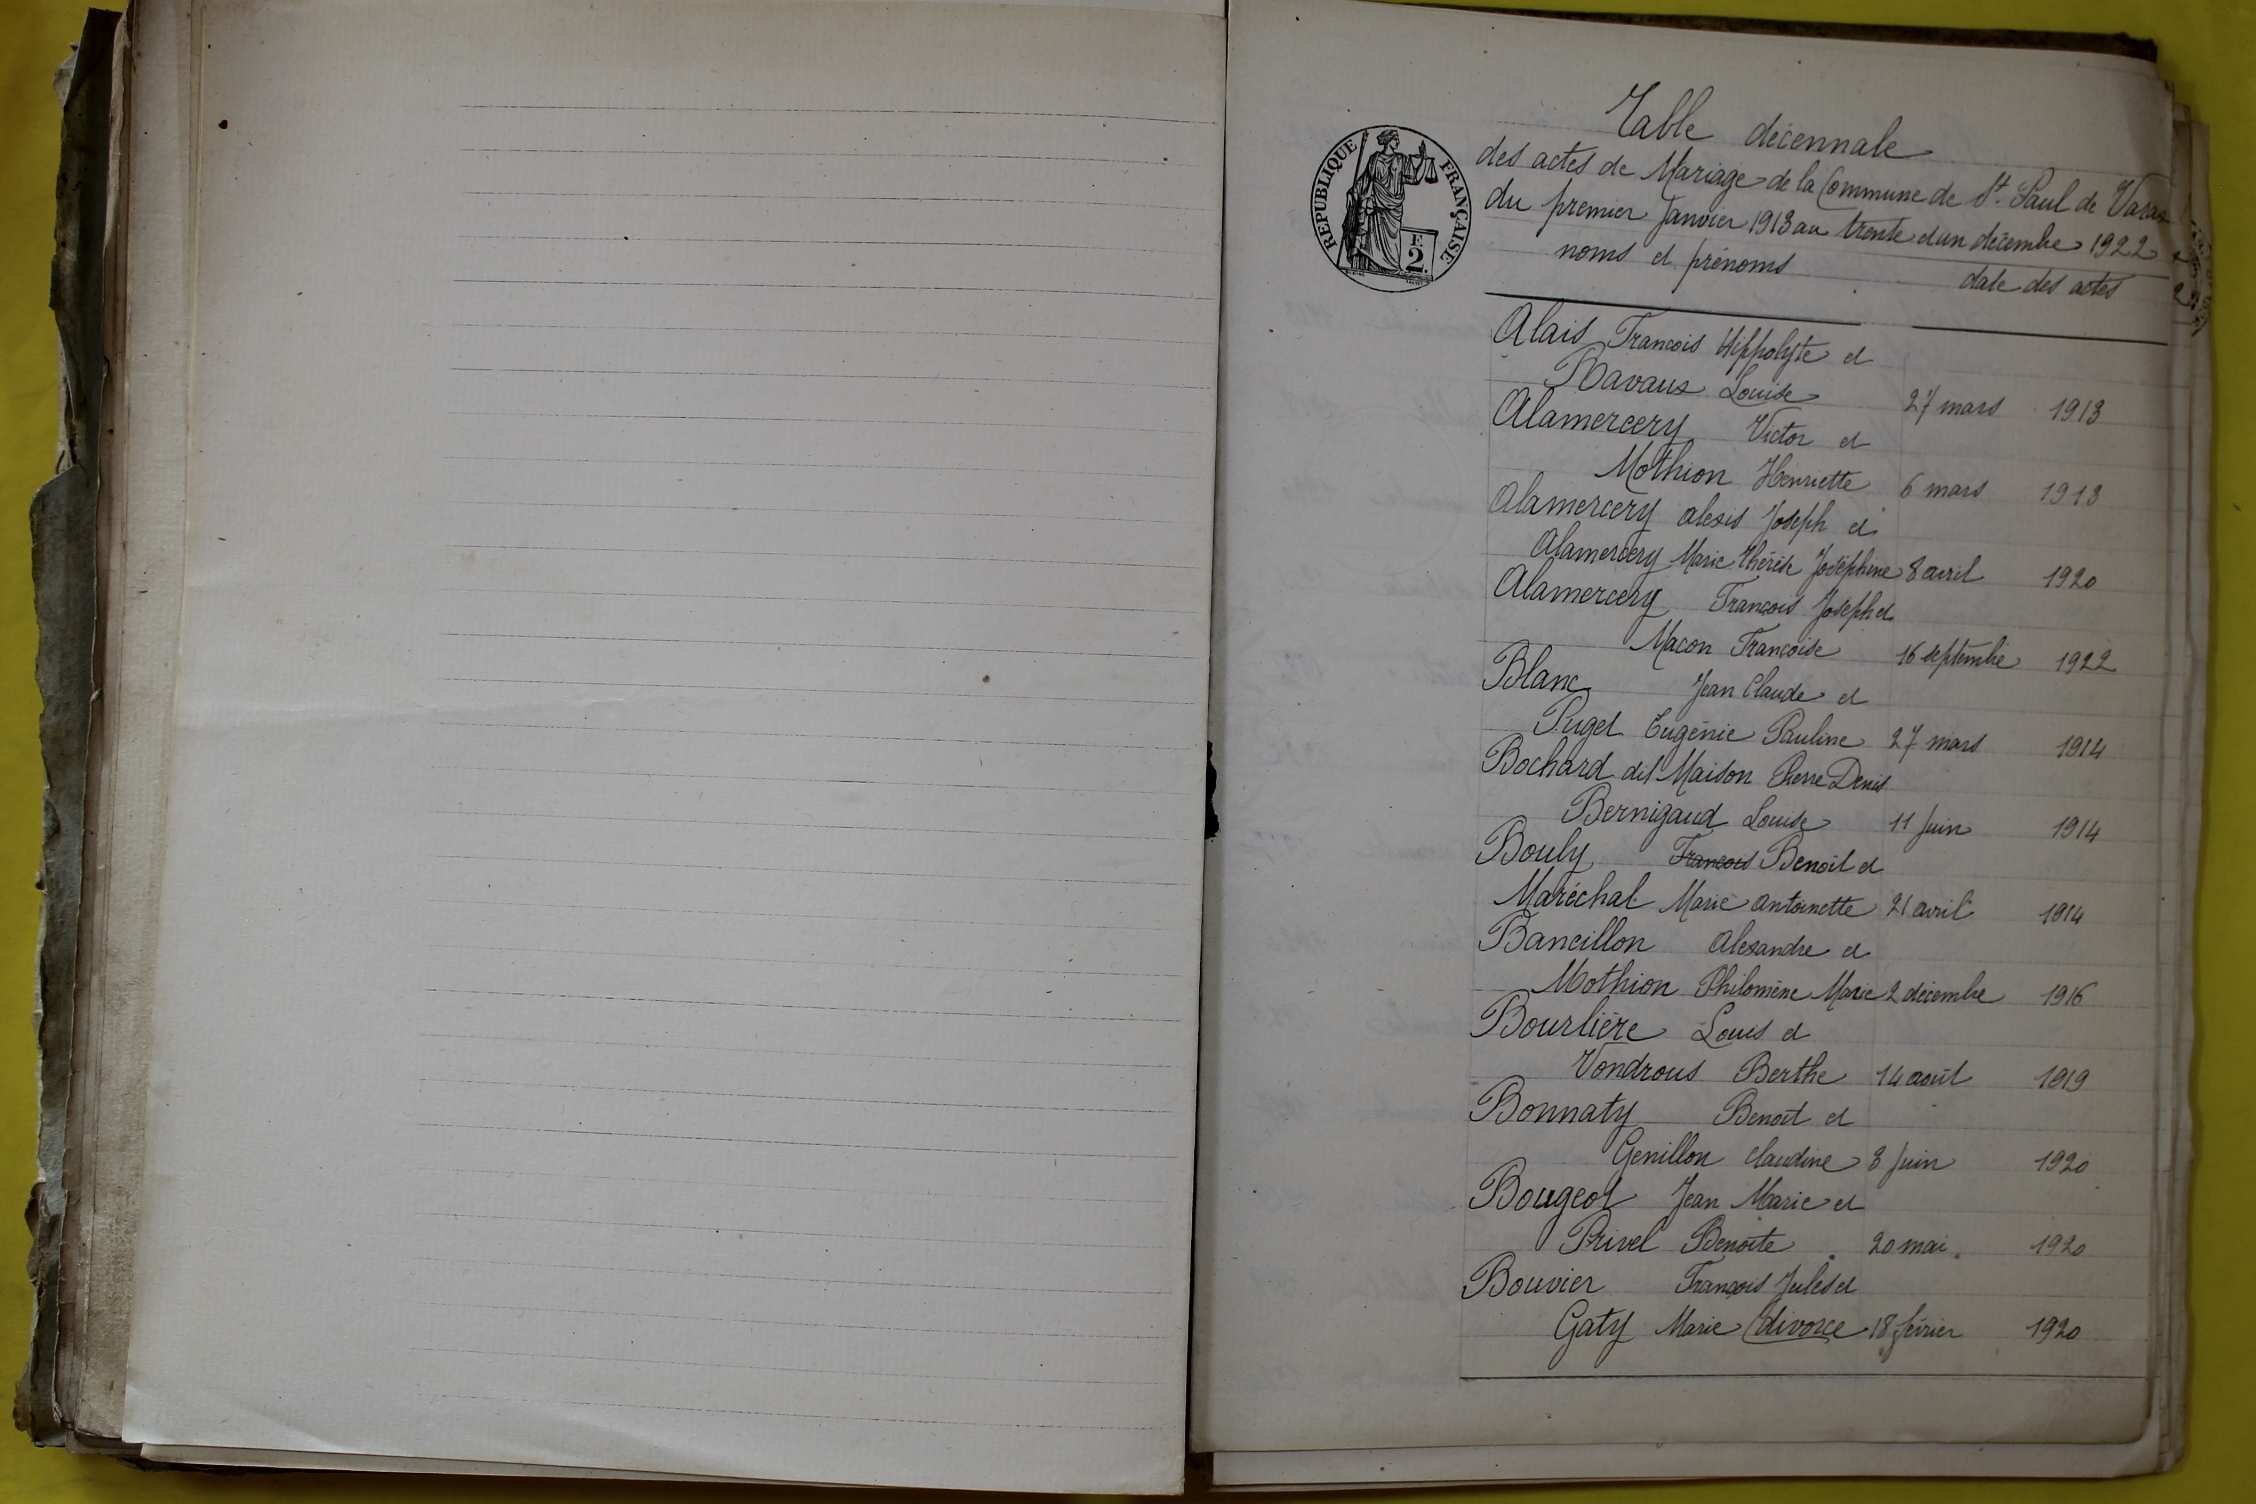 Table décennale
des actes de Mariage de la Commune de St. Paul de Varax
du premier Janvier 1913 au trente et un décembre 1922
RÉPUBLIQUE FRANÇAISE
F.
2.
noms et prénoms date des actes
Alais François Hippolyte et
Ravaux Louise 27 mars 1913
Alamercery Victor et
Mothion Henriette 6 mars 1913
Alamercery alexis Joseph et
Alamercery Marie Thérèse Joséphine 8 avril 1920
Alamercery François Joseph et
Macon Françoise 16 septembre 1922
Blanc Jean Claude et
Puget Eugénie Pauline 27 mars 1914
Bochard dit Maison Pierre Denis
Bernigaud Louise 11 Juin 1914
Bouly François Benoit et
Maréchal Marie antoinette 21 avril 1914
Bancillon Alexandre et
Mothion Philomène Marie 2 décembre 1916
Bourlière Louis et
Vondroux Berthe 14 août 1919
Bonnaty Benoît et
Genillon Claudine 3 Juin 1920
Bougeot Jean Marie et
Privel Benoîte 20 mai 1920
Bouvier François Jules et
Gaty Marie (divorce 18 février 1920